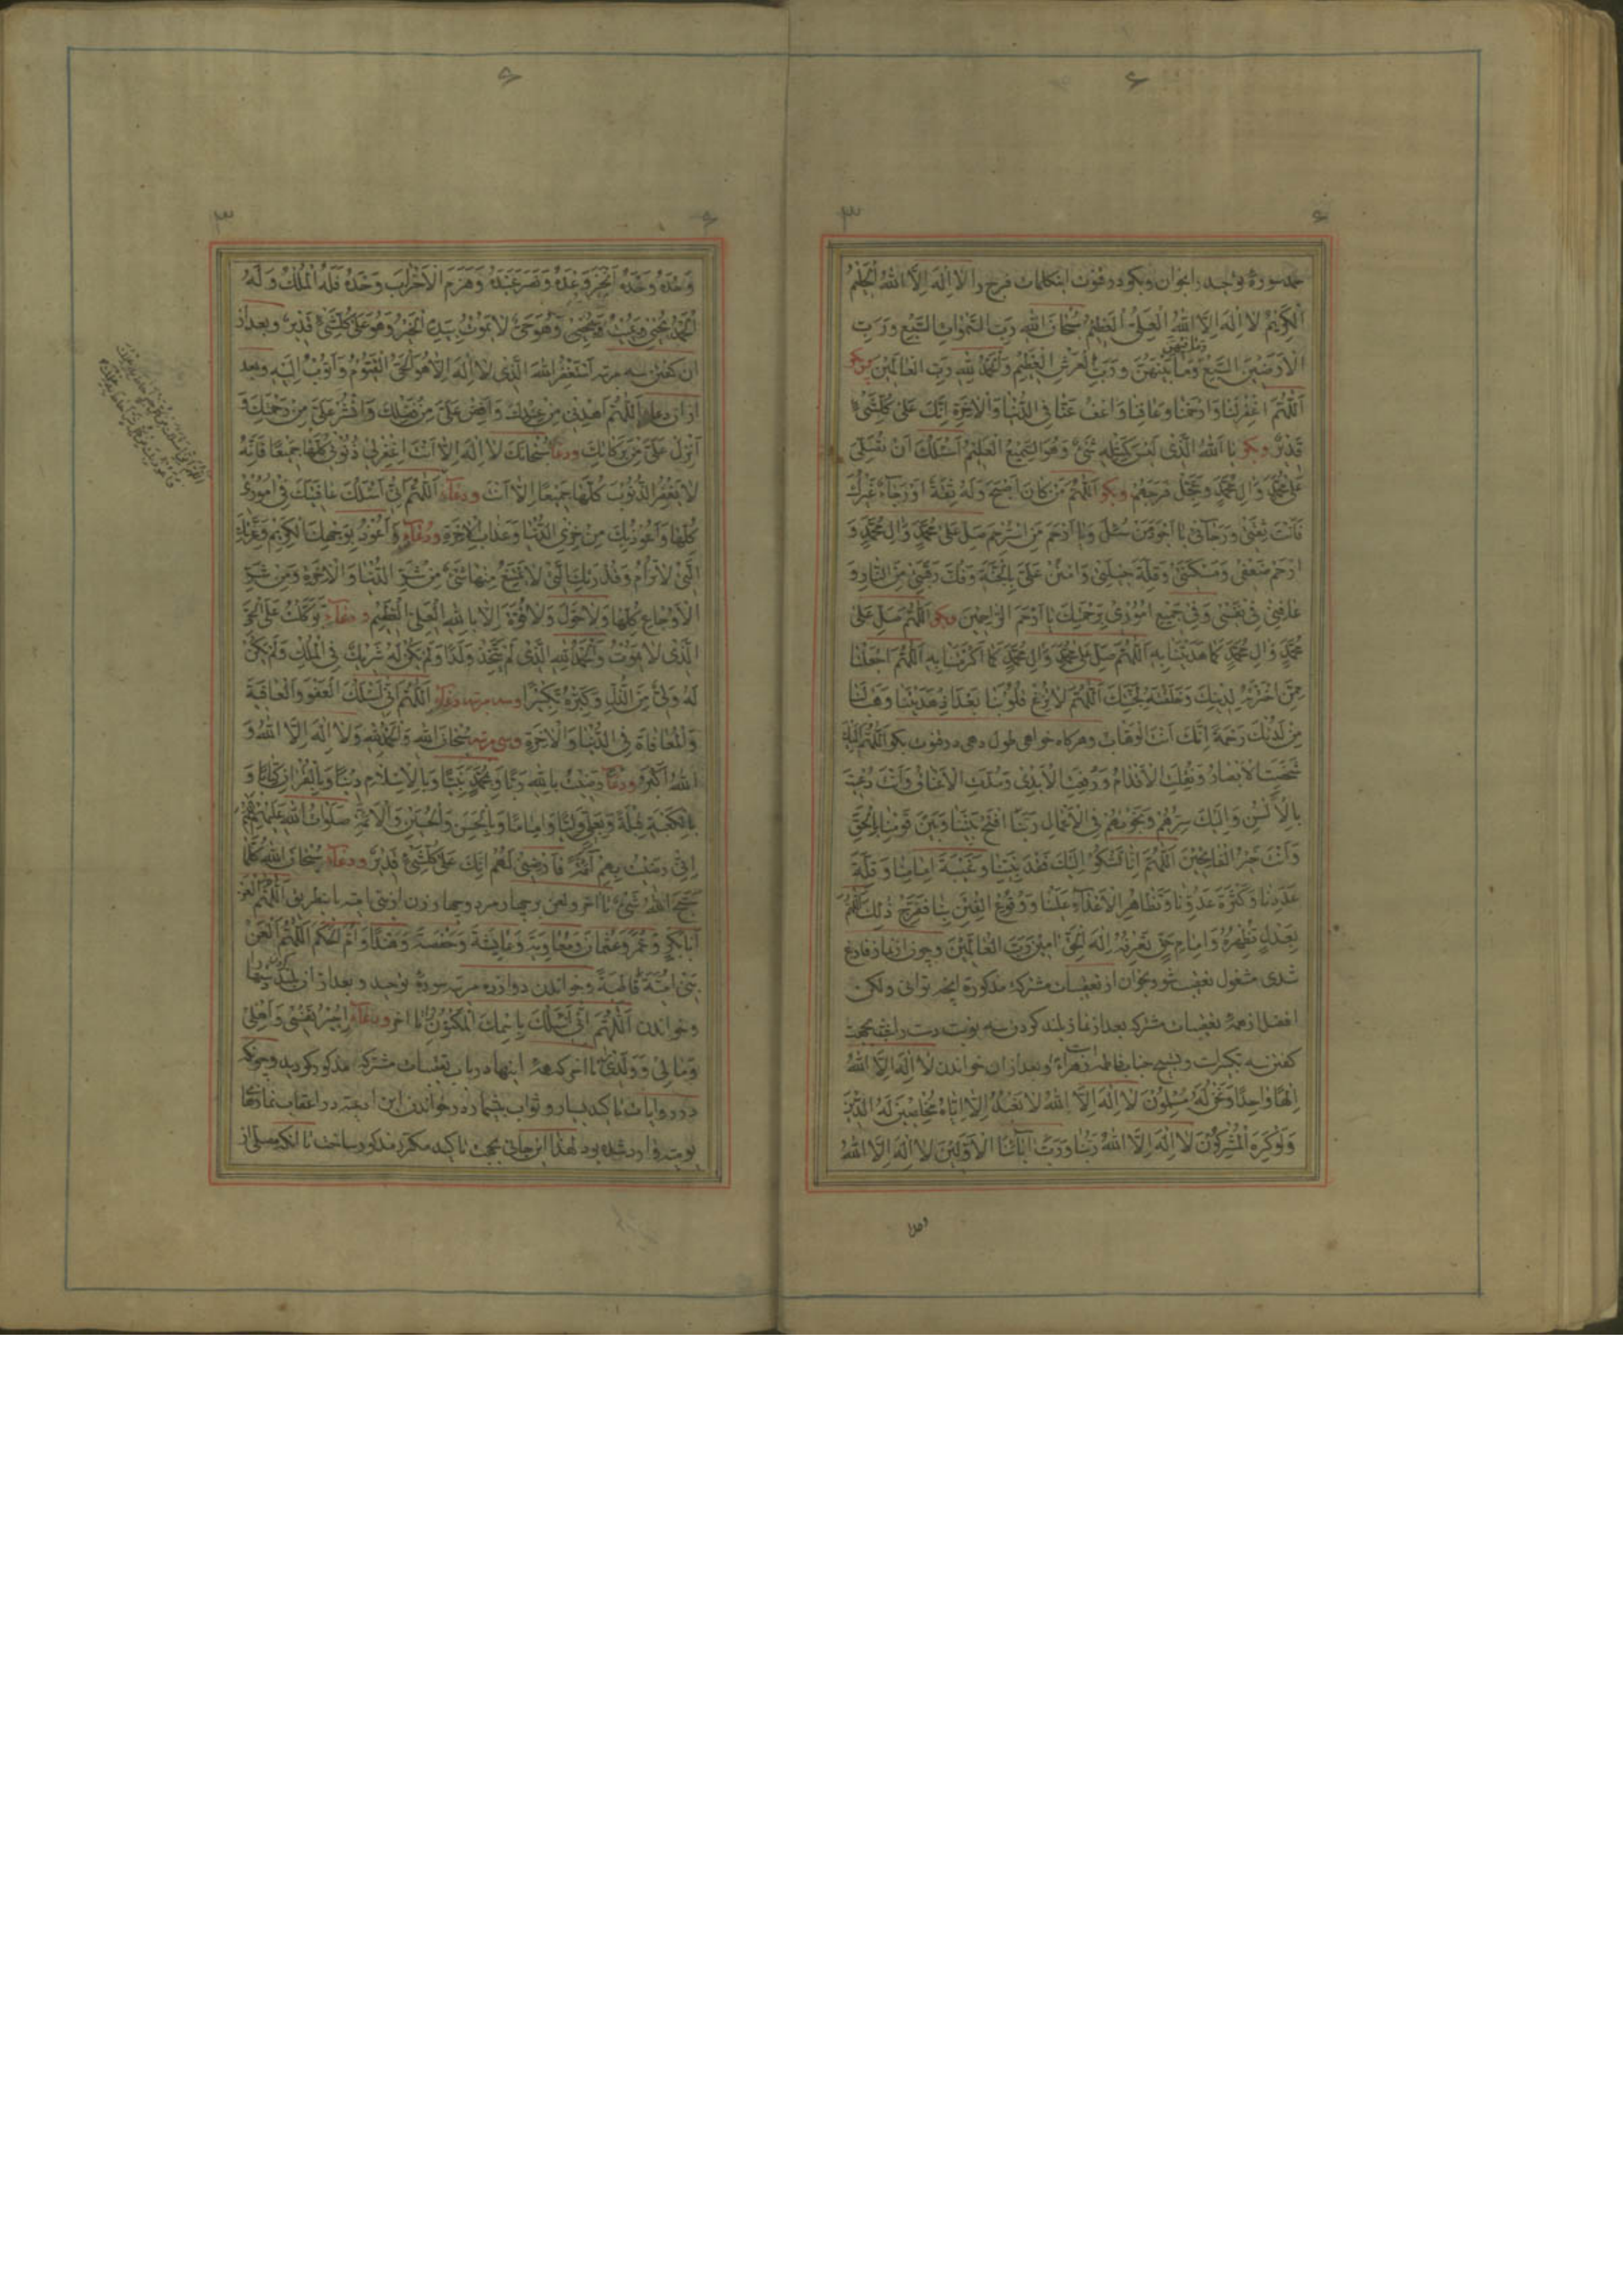 ۶
۳ ۶
حمد و سورهٔ توحید را بخوان و بگو در قنوت اینکلمات فرج را لا اِلٰهَ اِلَّا اللهُ الْحَلیمُ
الْکَریمُ لا اِلٰهَ اِلَّا اللهُ الْعَلِیُّ الْعَظیمُ سُبْحانَ اللهِ رَبِّ السَّمٰواتِ السَّبْعِ وَ رَبِّ
الْاَرَضینَ السَّبْعِ وَ ما بَیْنَهُنَّ وَ رَبِّ الْعَرْشِ الْعَظیمِ وَ الْحَمْدُ لِلّٰهِ رَبِّ الْعالَمینَ پس بگو
اَللّٰهُمَّ اغْفِرْ لَنا وَ ارْحَمْنا وَ عافِنا وَ اعْفُ عَنّا فِی الدُّنْیا وَ الْاٰخِرَةِ اِنَّکَ عَلیٰ کُلِّشَیْءٍ
قَدیرٌ و بگو یا اَللهُ الَّذی لَیْسَ کَمِثْلِهِ شَیْءٌ وَ هُوَ السَّمیعُ الْعَلیمُ اَسْئَلُکَ اَنْ تُصَلِّیَ
عَلیٰ مُحَمَّدٍ وَ اٰلِ مُحَمَّدٍ وَ عَجِّلْ فَرَجَهُمْ و بگو اَللّٰهُمَّ مَنْ کانَ اَصْبَحَ وَ لَهُ ثِقَةٌ اَوْ رَجاءٌ غَیْرُکَ
فَاَنْتَ ثِقَتی وَ رَجائی یا اَجْوَدَ مَنْ سُئِلَ وَ یا اَرْحَمَ مَنِ اسْتُرْحِمَ صَلِّ عَلیٰ مُحَمَّدٍ وَ اٰلِ مُحَمَّدٍ وَ
ارْحَمْ ضَعْفی وَ مَسْکَنَتی وَ قِلَّةَ حیلَتی وَ امْنُنْ عَلَیَّ بِالْجَنَّةِ وَ فُکَّ رَقَبَتی مِنَ النّارِ وَ
عافِنی فی نَفْسی وَ فی جَمیعِ اُمُوری بِرَحْمَتِکَ یا اَرْحَمَ الرّاحِمینَ و بگو اَللّٰهُمَّ صَلِّ عَلیٰ
مُحَمَّدٍ وَ اٰلِ مُحَمَّدٍ کَما هَدَیْتَنا بِهِ اَللّٰهُمَّ صَلِّ عَلیٰ مُحَمَّدٍ وَ اٰلِ مُحَمَّدٍ کَما اَکْرَمْتَنا بِهِ اَللّٰهُمَّ اجْعَلْنا
مِمَّنِ اخْتَرْتَهُ لِدینِکَ وَ خَلَقْتَهُ لِجَنَّتِکَ اَللّٰهُمَّ لا تُزِغْ قُلُوبَنا بَعْدَ اِذْ هَدَیْتَنا وَ هَبْ لَنا
مِنْ لَدُنْکَ رَحْمَةً اِنَّکَ اَنْتَ الْوَهّابُ و هرکاه خواهی طول دهی در قنوت بگو اَللّٰهُمَّ اِلَیْکَ
شَخَصَتِ الْاَبْصارُ وَ نُقِلَتِ الْاَقْدامُ وَ رُفِعَتِ الْاَیْدی وَ مُدَّتِ الْاَعْناقُ وَ اَنْتَ دُعیتَ
بِالْاَلْسُنِ وَ اِلَیْکَ سِرُّهُمْ وَ نَجْوٰیهُمْ فِی الْاَعْمالِ رَبَّنَا افْتَحْ بَیْنَنا وَ بَیْنَ قَوْمِنا بِالْحَقِّ
وَ اَنْتَ خَیْرُ الْفاتِحینَ اَللّٰهُمَّ اِنّا نَشْکُو اِلَیْکَ فَقْدَ نَبِیِّنا وَ غَیْبَةَ اِمامِنا وَ قِلَّةَ
عَدَدِنا وَ کَثْرَةَ عَدُوِّنا وَ تَظاهُرَ الْاَعْداءِ عَلَیْنا وَ وُقُوعَ الْفِتَنِ بِنا فَفَرِّجْ ذٰلِکَ اللّٰهُمَّ
بِعَدْلٍ تُظْهِرُهُ وَ اِمامِ حَقٍّ تَعْرِفُهُ اِلٰهَ الْحَقِّ اٰمینَ رَبَّ الْعالَمینَ و چون از نماز فارغ
شدی مشغول تعقیب شو و بخوان از تعقیبات مشترکه مذکوره انچه توانی و لکن
افضل از همهٔ تعقیبات مشترکه بعد از نماز بلند کردن سه نوبت دست را بقصد
کفتن سه تکبیرات و تسبیح جناب فاطمه زهراء و بعد از ان خواندن لا اِلٰهَ اِلَّا اللهُ
اِلٰهًا واحِدًا وَ نَحْنُ لَهُ مُسْلِمُونَ لا اِلٰهَ اِلَّا اللهُ لا نَعْبُدُ اِلّا اِیّاهُ مُخْلِصینَ لَهُ الدّینَ
وَ لَوْ کَرِهَ الْمُشْرِکُونَ لا اِلٰهَ اِلَّا اللهُ رَبُّنا وَ رَبُّ اٰبائِنَا الْاَوَّلینَ لا اِلٰهَ اِلَّا اللهُ
وحده
۶
۳ ۶
وَحْدَهُ وَحْدَهُ اَنْجَزَ وَعْدَهُ وَ نَصَرَ عَبْدَهُ وَ هَزَمَ الْاَحْزابَ وَحْدَهُ فَلَهُ الْمُلْکُ وَ لَهُ
الْحَمْدُ یُحْیی وَ یُمیتُ وَ یُمیتُ وَ یُحْیی وَ هُوَ حَیٌّ لا یَمُوتُ بِیَدِهِ الْخَیْرُ وَ هُوَ عَلیٰ کُلِّشَیْءٍ قَدیرٌ و بعد از
ان کفتن سه مرتبه اَسْتَغْفِرُ اللهَ الَّذی لا اِلٰهَ اِلّا هُوَ الْحَیُّ الْقَیُّومُ وَ اَتُوبُ اِلَیْهِ و بعد
از ان دعاء اَللّٰهُمَّ اهْدِنی مِنْ عِنْدِکَ وَ اَفِضْ عَلَیَّ مِنْ فَضْلِکَ وَ انْشُرْ عَلَیَّ مِنْ رَحْمَتِکَ وَ
اَنْزِلْ عَلَیَّ مِنْ بَرَکاتِکَ و دعاء سُبْحانَکَ لا اِلٰهَ اِلّا اَنْتَ اغْفِرْ لی ذُنُوبی کُلَّها جَمیعًا فَاِنَّهُ
لا یَغْفِرُ الذُّنُوبَ کُلَّها جَمیعًا اِلّا اَنْتَ و دعاء اَللّٰهُمَّ اِنّی اَسْئَلُکَ عافِیَتَکَ فی اُمُوری
کُلِّها وَ اَعُوذُ بِکَ مِنْ خِزْیِ الدُّنْیا وَ عَذابِ الْاٰخِرَةِ و دعاء وَ اَعُوذُ بِوَجْهِکَ الْکَریمِ وَ عِزَّتِکَ
الَّتی لا تُرامُ وَ قُدْرَتِکَ الَّتی لا یَمْتَنِعُ مِنْها شَیْءٌ مِنْ شَرِّ الدُّنْیا وَ الْاٰخِرَةِ وَ مِنْ شَرِّ
الْاَوْجاعِ کُلِّها وَ لا حَوْلَ وَ لا قُوَّةَ اِلّا بِاللهِ الْعَلِیِّ الْعَظیمِ و دعاء تَوَکَّلْتُ عَلَی الْحَیِّ
الَّذی لا یَمُوتُ وَ الْحَمْدُ لِلّٰهِ الَّذی لَمْ یَتَّخِذْ وَلَدًا وَ لَمْ یَکُنْ لَهُ شَریکٌ فِی الْمُلْکِ وَ لَمْ یَکُنْ
لَهُ وَلِیٌّ مِنَ الذُّلِّ وَ کَبِّرْهُ تَکْبیرًا و سه مرتبه دعاء اَللّٰهُمَّ اِنّی اَسْئَلُکَ الْعَفْوَ وَ الْعافِیَةَ
وَ الْمُعافاةَ فِی الدُّنْیا وَ الْاٰخِرَةِ و سی مرتبه سُبْحانَ اللهِ وَ الْحَمْدُ لِلّٰهِ وَ لا اِلٰهَ اِلَّا اللهُ وَ
اللهُ اَکْبَرُ و دعاء رَضیتُ بِاللهِ رَبًّا وَ بِمُحَمَّدٍ نَبِیًّا وَ بِالْاِسْلامِ دینًا وَ بِالْقُرْاٰنِ کِتابًا وَ
بِالْکَعْبَةِ قِبْلَةً وَ بِعَلِیٍّ وَلِیًّا وَ اِمامًا وَ بِالْحَسَنِ وَ الْحُسَیْنِ وَ الْاَئِمَّةِ صَلَواتُ اللهِ عَلَیْهِمْ اَللّٰهُمَّ
اِنّی رَضیتُ بِهِمْ اَئِمَّةً فَارْضَنی لَهُمْ اِنَّکَ عَلیٰ کُلِّشَیْءٍ قَدیرٌ و دعاء سُبْحانَ اللهِ کُلَّما
سَبَّحَ اللهَ شَیْءٌ تا اخر و لعن بر چهار مرد و چهار زن از بنی امیه باینطریق اَللّٰهُمَّ الْعَنْ
اَبابَکْرٍ وَ عُمَرَ وَ عُثْمانَ وَ مُعاوِیَةَ وَ عایِشَةَ وَ حَفْصَةَ وَ هِنْدًا وَ اُمَّ الْحَکَمِ اَللّٰهُمَّ الْعَنْ
بَنی اُمَیَّةَ قاطِبَةً و خواندن دوازده مرتبه سورهٔ توحید و بعد از ان بلند کردن دستها را
و خواندن اَللّٰهُمَّ اِنّی اَسْئَلُکَ بِاسْمِکَ الْمَکْنُونِ تا اخر و دعاء اُجیرُ نَفْسی وَ اَهْلی
وَ مالی وَ وَلَدی تا اخر که همهٔ اینها در باب تعقیبات مشترکه مذکور کردید و چونکه
در روایات تاکید بسیار و ثواب بیشمار در خواندن این ادعیه در اعقاب نمازهای
یومیه وارد شده بود لهذا این جانی بجهت تاکید مکرر مذکور ساخت تا انکه مسلی از